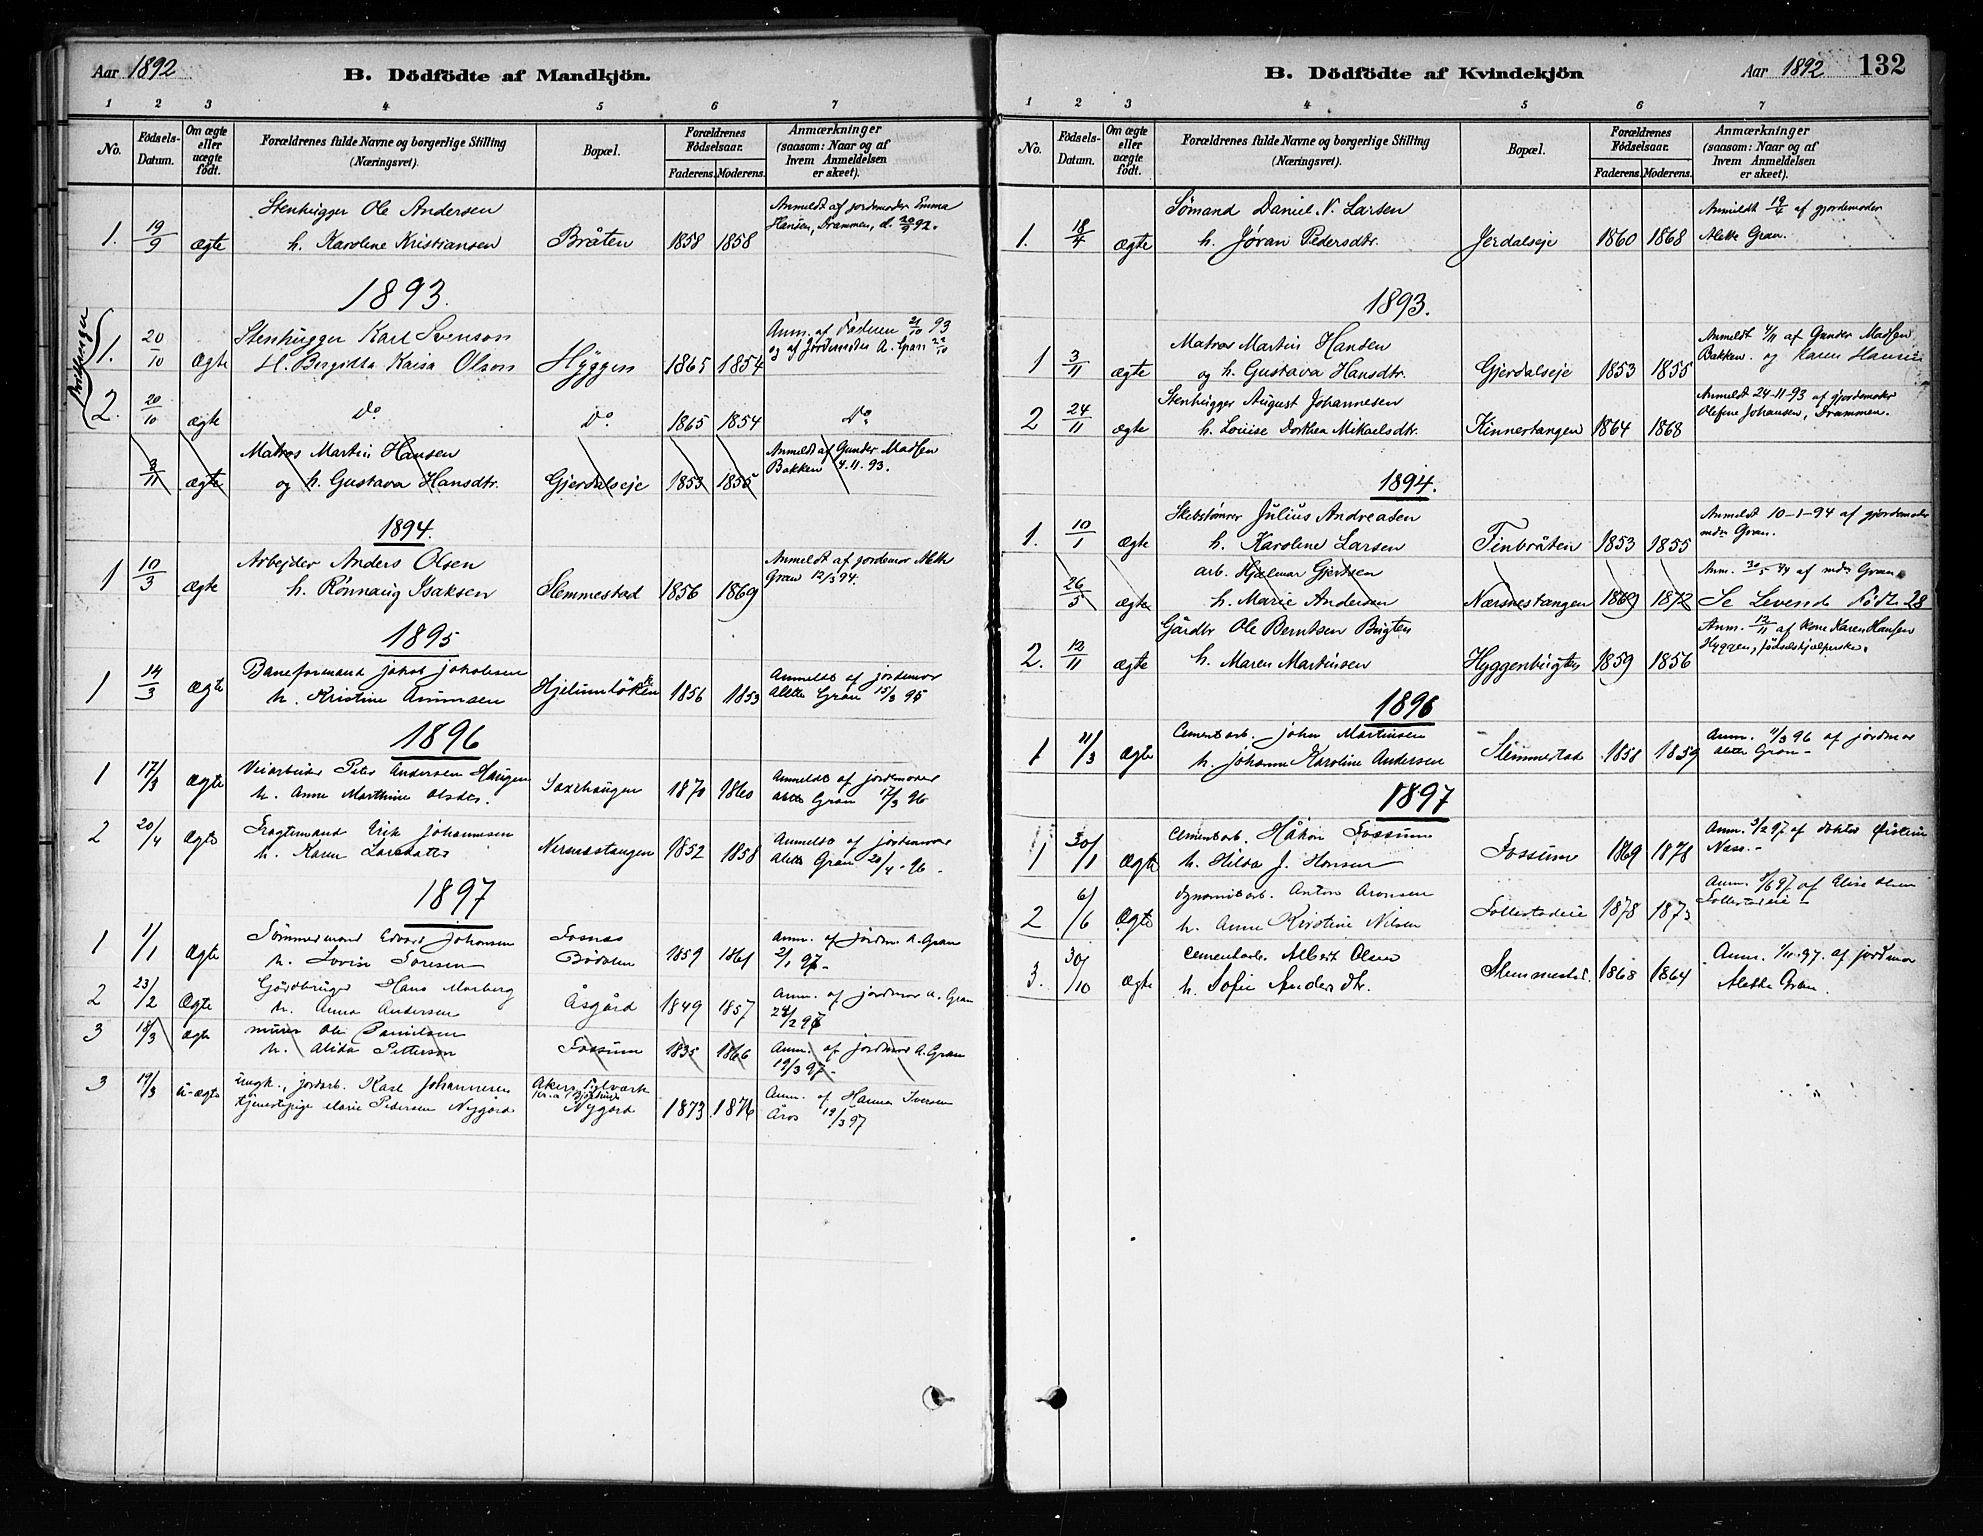 Aar 1892
B. Dödfödte af Mandkjön.
1 2 3 4 5 6 7
No.
Födsels-Datum.
Om ægte eller uægte født.
Forældrenes fulde Navne og borgerlige Stilling
(Næringsvei).
Bopæl.
Forældrenes Födselsaar.
Faderens. Moderens.
Anmærkninger
(saasom: Naar og af
hvem Anmeldelsen
er skeet).
Stenhugger Ole Andersen
Anmeldt af jordemoder Emma
1. 19/9 ægte h. Karoline Kristiansen Bråten 1858 1858 Hansen, Drammen, d. 20/9 92.
1893.
Stenhugger Karl Svenson
Anm. af Faderen 21/10 93
1. 20/10 Ægte H. Birgitta Kaisa Olson Hyggen 1865 1854 og af Jordemoder A. Gran 22/10
2. 20/10 ægte Do Do 1865 1854 Do
Matros Martin Hansen
Anmeldt af Gunder Madsen
3/11 ægte og h. Gustava Hansdtr. Gjerdalseje 1853 1855 Bakken 4.11.93.
1894.
Arbejder Anders Olsen
Anmeldt af jordemor Aleth
1 10/3 ægte h. Rønnaug Isaksen Slemmestad 1856 1869 Gran 12/3 94.
1895
Baneformand Jakob Jakobsen
Anmeldt af jordemor
1 14/3 ægte h. Kristine 1856 1853 Alette Gran 15/3 95
1896
Veiarbeider Peter Andersen Haugen
Anmeldt af jordemoder
1 17/3 Ægte h. Anne Marthine Olsdtr. Saxehaugen 1870 1860 Alette Gran 17/3 96
Fragtemand Erik Johannesen
Anmeldt af jordemor
2 20/4 Ægte h. Karen Larsdatter Nersnæstangen 1852 1858 Alette Gran 20/4 96.
1897
Tömmermand Edvard Johansen Fosnæs
Anm. af jordm. A. Gran
1 1/1 Ægte h. Lovise 1859 1861 2/1 97.
Gårdbruger Hans Morberg
Anm. af jordmor A. Gran
2 23/2 Ægte h. Anna Andersen Åsgård 1849 1857 24/2 97
3 18/3 Ægte murer Ole Danielsen
h. Alida Petterson Fossum 1835 1866 Anm. af jordmor A. Gran
19/3 97.
3 19/3 u-ægte ungk., jordarb. Karl Johannesen
Anm. af Hanna Iversen
tjenestepige Marie Pedersen Nygård Nygård 1873 1876 Åros 19/3 97
Tvillinger
B. Dödfödte af Kvindekjön
Aar 1892 132
1 2 3 4 5 6 7
No.
Födsels-Datum.
Om ægte eller uægte født.
Forældrenes fulde Navne og borgerlige Stilling
(Næringsvei).
Bopæl.
Forældrenes Födselsaar.
Faderens. Moderens.
Anmærkninger
(saasom: Naar og af
hvem Anmeldelsen
er skeet).
Sømand Daniel N. Larsen
Anmeldt 19/4 af gjordemoder
1. 18/4 ægte h. Jøran Pedersdtr. Jerdalseje 1860 1868 Alette Gran.
1893.
Matros Martin Hansen
Anmeldt 4/11 af Gunder Madsen
1 3/11 ægte og h. Gustava Hansdtr. Gjerdalseje 1853 1855 Bakken og Karen Hansen
Stenhugger August Johannesen
Anmeldt 24-11-93 af gjordemoder
2 24/11 ægte h. Louise Dorthea Mikaelsdtr. Kinnertangen 1864 1868 Olefine Johansen, Drammen.
1894.
Skibstømrer Julius Andreasen
Anmeldt 10-1-94 af gjordemoder
1. 10/1 Ægte h. Karoline Larsen Finbråten 1853 1855 mdr Gran.
arb. Hjalmar Gjertsen
Anm. 30/5 94 af mdr Gran.
26/5 ægte h. Marie Andersen Næsnestangen 1869 1872 Se Levende Födte 28
Gårdbr Ole Berntsen Bugten
Anm. 12/11 af Kone Karen Hansen
2. 12/11 ægte h. Maren Martinsen Hyggenbugten 1859 1856 Hyggen, fødselshjælperske.
1896
Cementarb. John Martinsen
Anm. 11/3 96 af jordmor
1 11/3 Ægte h. Johanne Karoline Andersen Slemmestad 1858 1859 Alette Gran
1897
Cementarb. Håkon Fossum
Anm. 3/2 97 af doktor Øistein
1 30/1 Ægte h. Hilda J. Hansen Fossum 1869 1878 Næss.
Dynamitarb. Anton Aronsen
Anm. 8/6 97 af Elise Olsen
2 6/6 Ægte h. Anne Kristine Nilsen Follestadeie 1878 1873 Follestadeie
Cementarb. Albert Olsen
Anm. 1/11.97. af jordmor
3. 30/10 ægte h. Sofie Andersdtr. Slemmestad 1868 1864 Alette Gran.